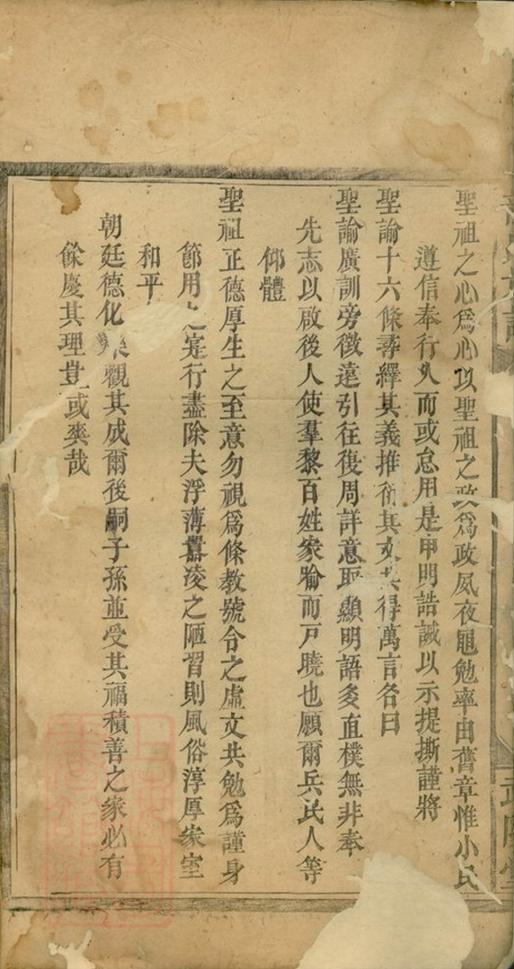 聖祖之心爲心以聖祖之政爲政夙夜黽勉率由舊章惟小民
遵信奉行久而或怠用是申明誥誡以示提撕謹將
聖諭十六條尋繹其義推衍其文共得萬言名曰
聖諭廣訓旁徵遠引往復周詳意取顯明語多直樸無非奉
先志以啟後人使羣黎百姓家喻而戸曉也願爾兵民人等
仰體
聖祖正德厚生之至意勿視爲條教號令之虛文共勉爲謹身
節用之 行盡除夫浮薄囂淩之陋習則風俗淳厚家室
和平
朝廷德化樂觀其成爾後嗣子孫並受其福積善之家必有
餘慶其理豈或爽哉